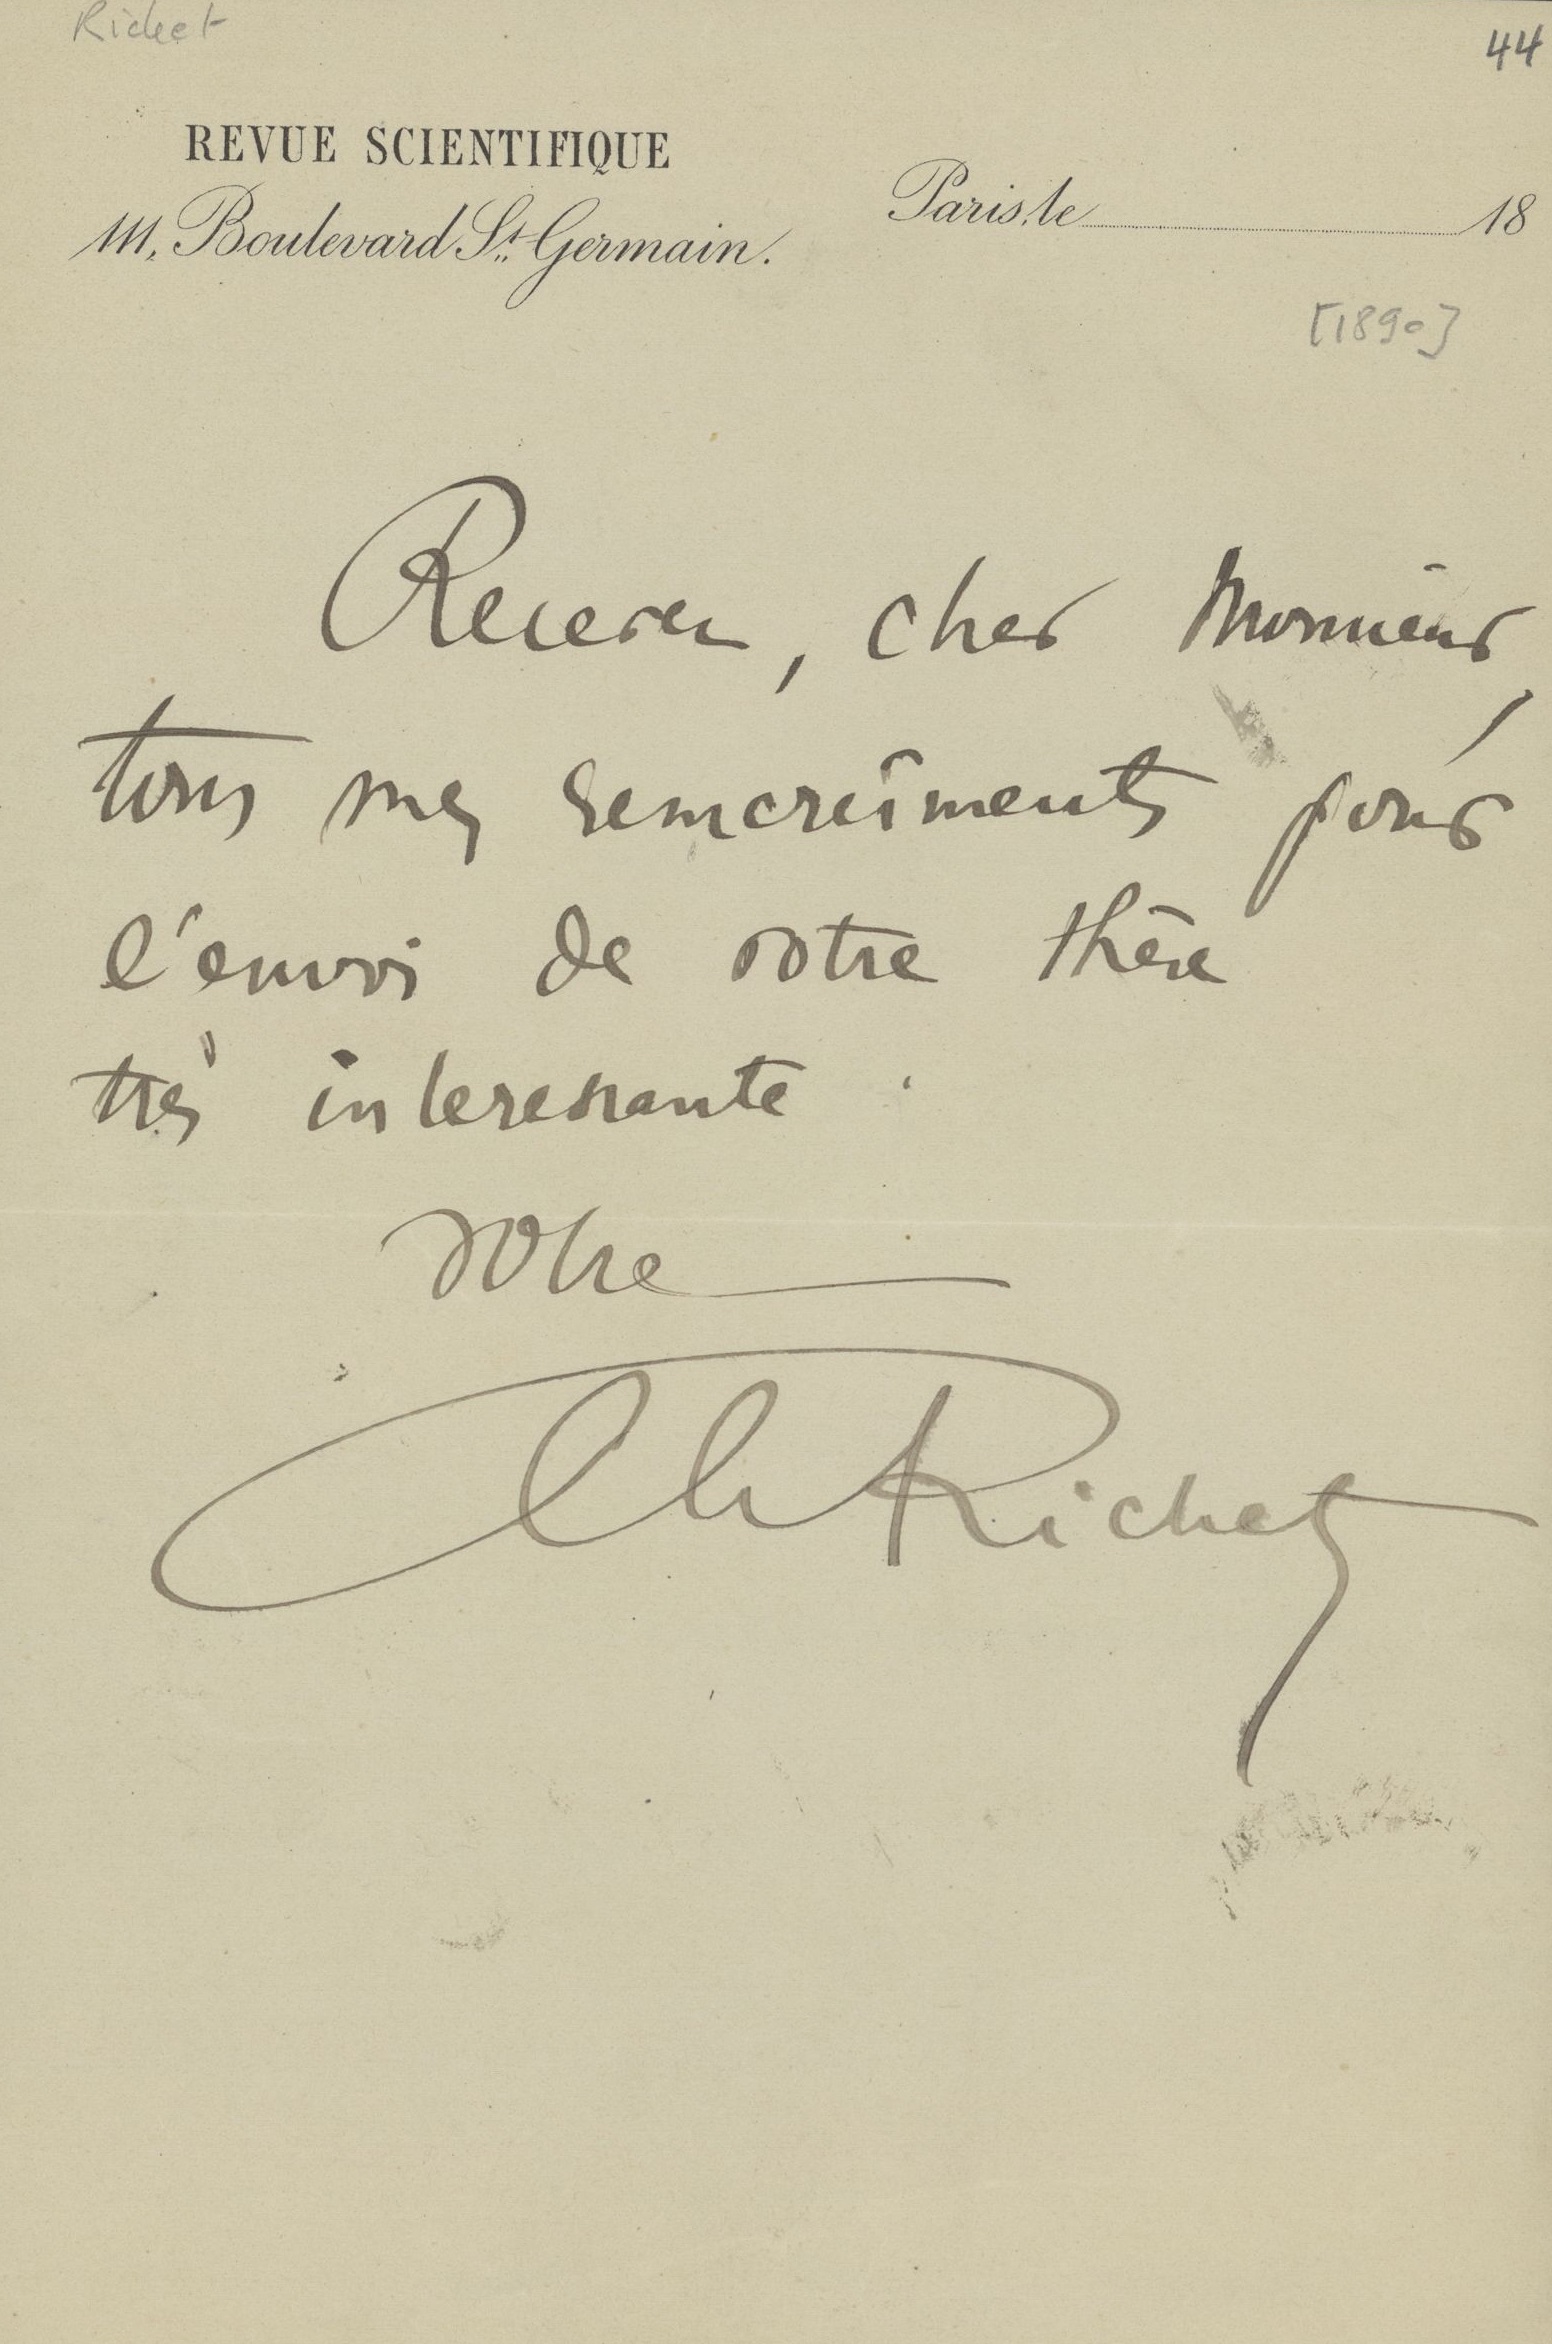 Richet
44
REVUE SCIENTIFIQUE
111, Boulevard St. Germain.
Paris, le 18
[1890]
Recevez, cher Monsieur,
tous mes remercîments pour
l'envoi de votre thèse
très interessante.
votre
Ch Richet